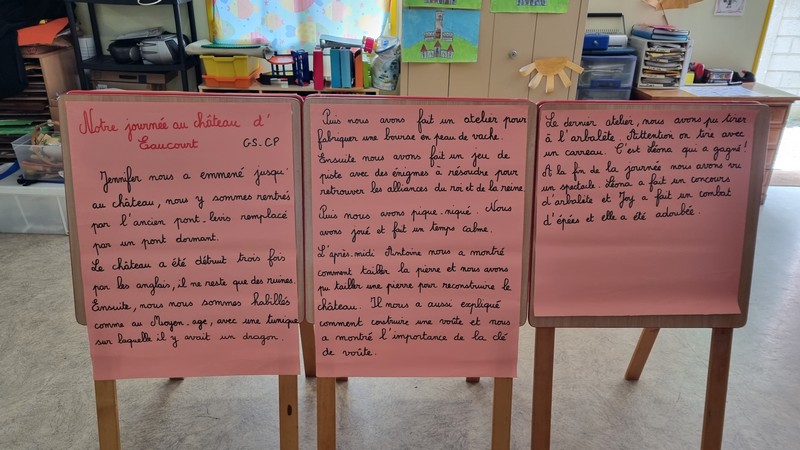 Notre journée au château d'
Eaucourt GS.CP
Jennifer nous a emmené jusqu'
au château, nous y sommes rentrés
par l'ancien pont-levis remplacé
par un pont dormant.
Le château a été détruit trois fois
par les anglais, il ne reste que des ruines.
Ensuite, nous nous sommes habillés
comme au Moyen-age, avec une tunique
sur laquelle il y avait un dragon.
Puis nous avons fait un atelier pour
fabriquer une bourse en peau de vache.
Ensuite nous avons fait un jeu de
piste avec des énigmes à résoudre pour
retrouver les alliances du roi et de la reine.
Puis nous avons pique-niqué. Nous
avons joué et fait un temps calme.
L'après-midi Antoine nous a montré
comment tailler la pierre et nous avons
pu tailler une pierre pour reconstruire le
château. Il nous a aussi expliqué
comment construire une voûte et nous
a montré l'importance de la clé
de voûte.
Le dernier atelier, nous avons pu tirer
à l'arbalète. Attention on tire avec
un carreau. C'est Léona qui a gagné!
A la fin de la journée nous avons vu
un spectacle. Léona a fait un concours
d'arbalète et Joy a fait un combat
d'épées et elle a été adoubée.